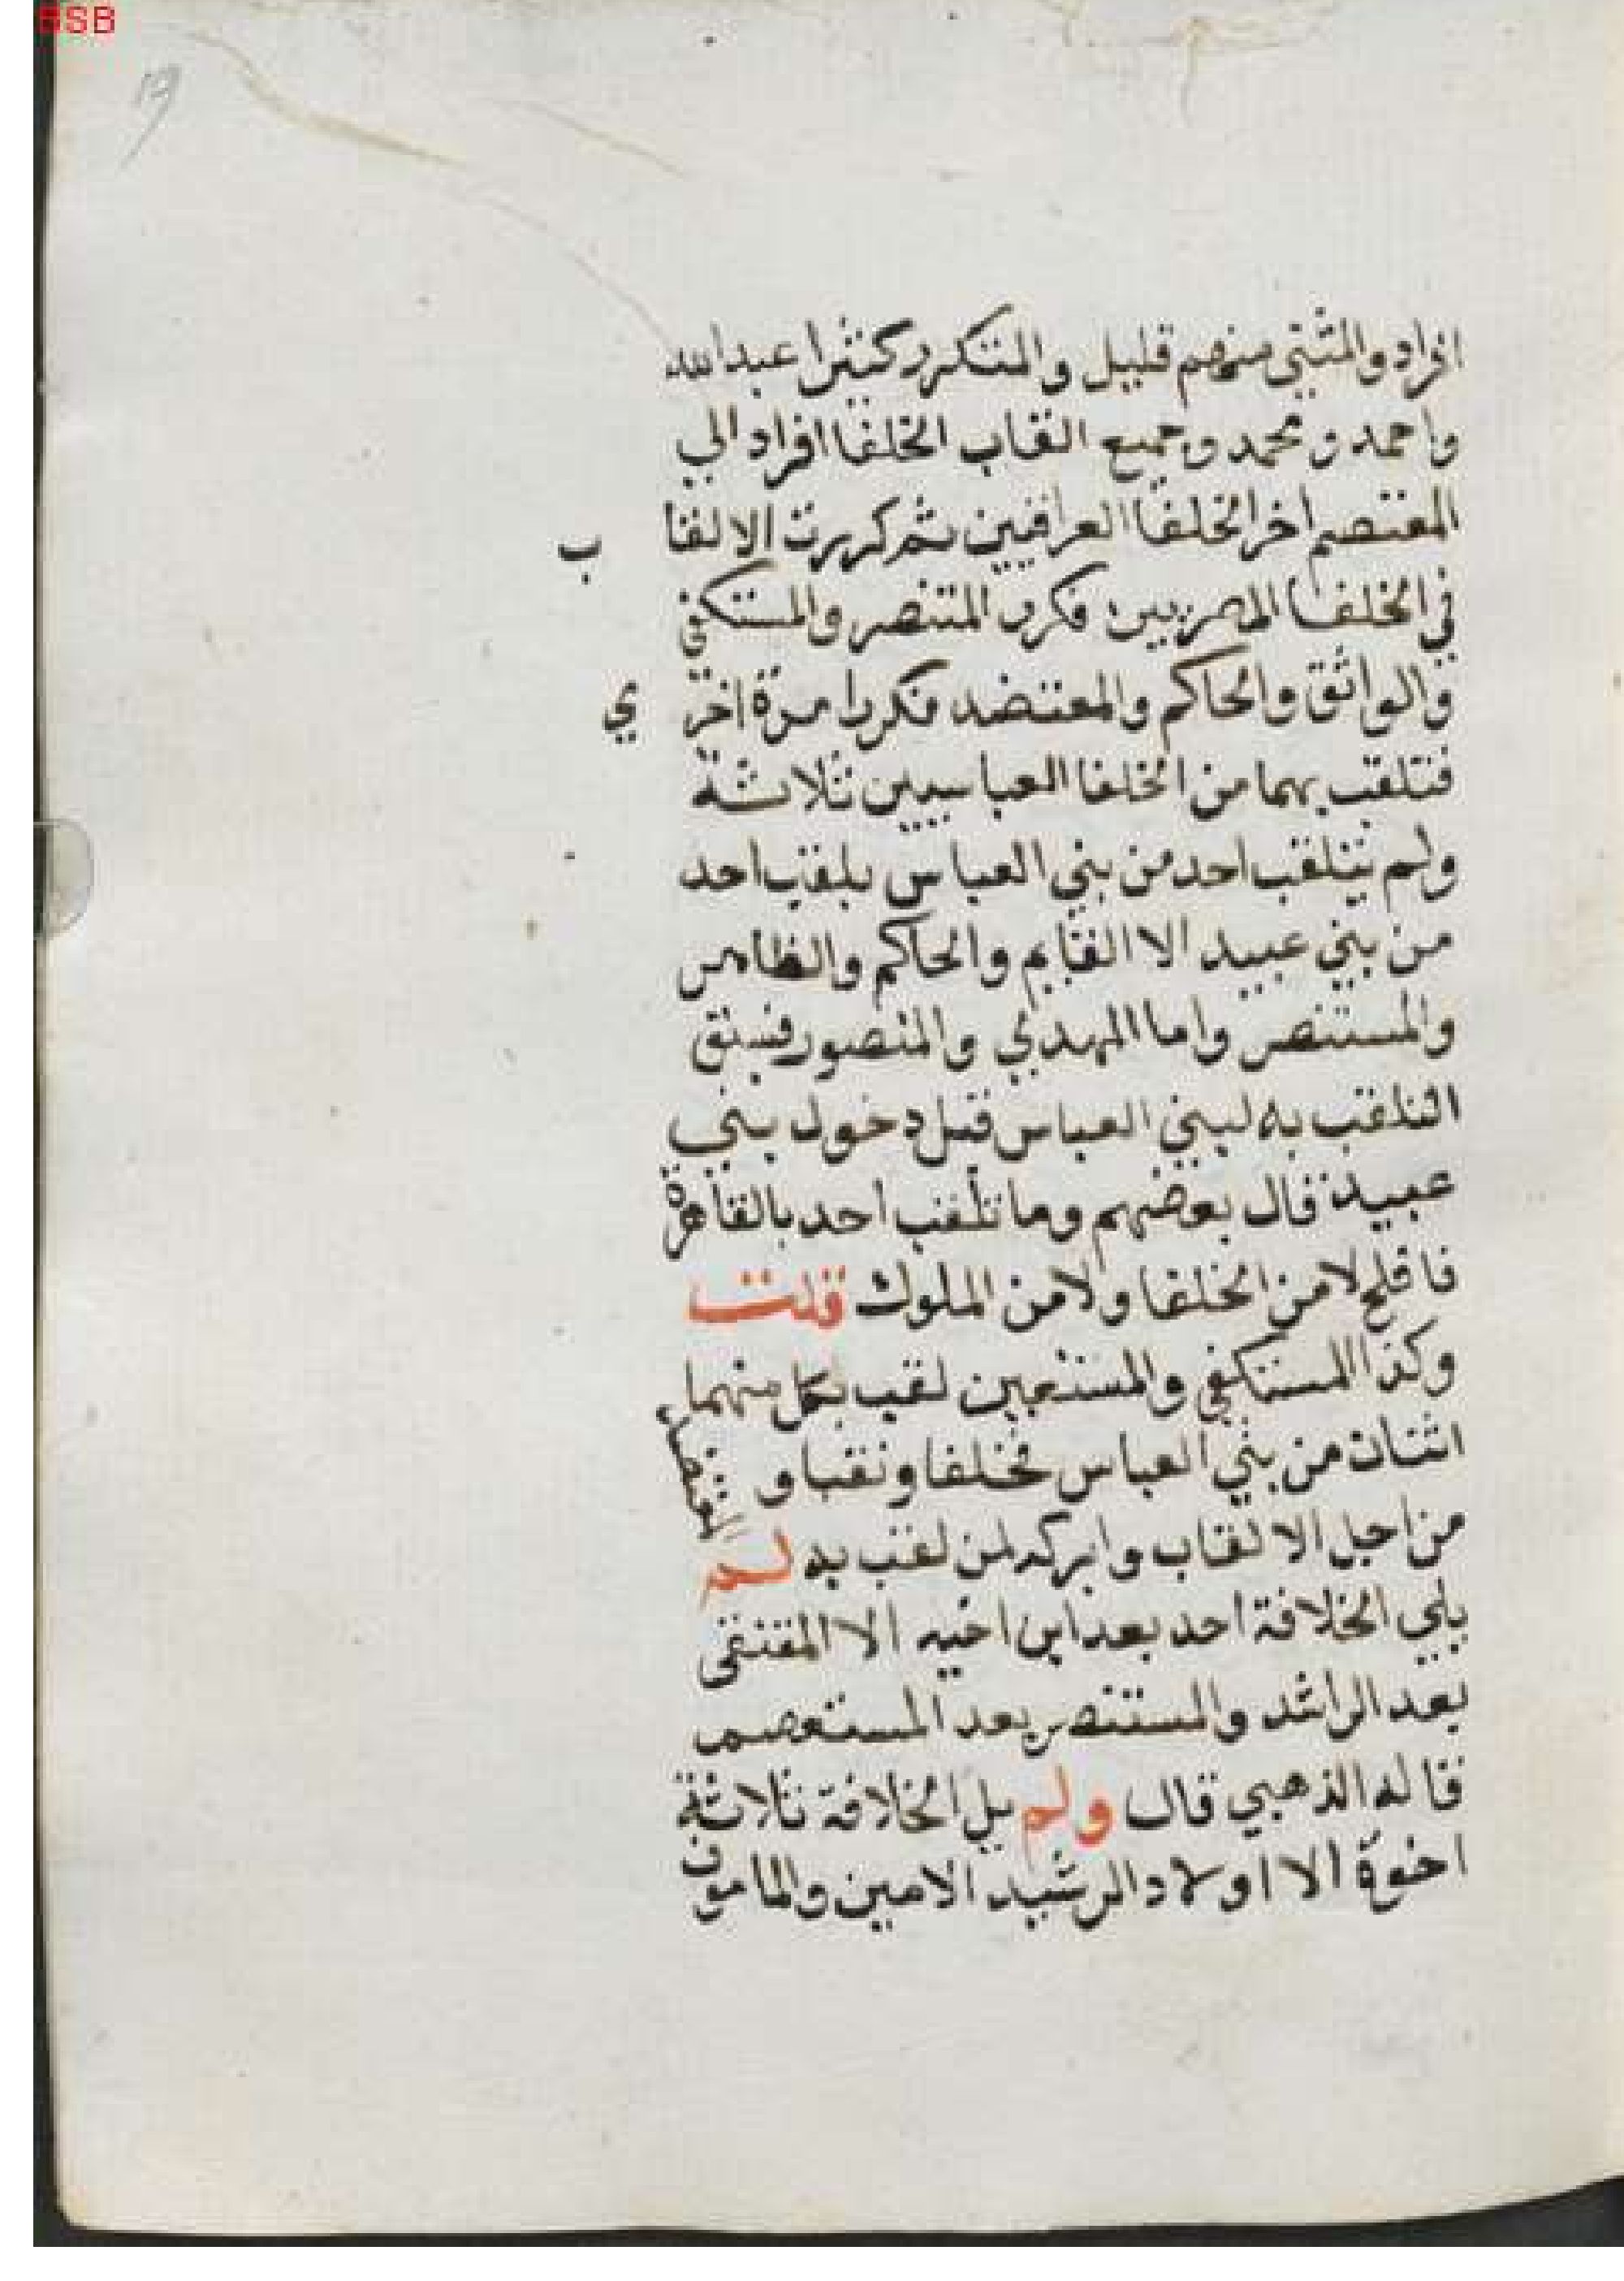 BSB
13
افراد والمثني منهم قليل والمتكرر كثيرا عبدالله
واحمد ومحمد وجميع القاب الخلفا افراد الي
المعتصم اخر الخلفا العراقيين ثم كررت الالقا ب
في الخلفا المصريين فكرر المتنصر والمستكفي
والواثق والحاكم والمعتضد فكررا مرة اخر ي
فتلقب بهما من الخلفا العباسيين ثلاثة
ولم يتلقب احد من بني العباس بلقب احد
من بني عبيد الا القايم والحاكم والظاهر
والمستنصر واما المهدي والمنصور فسبق
التلقب به لبني العباس قبل دخول بني
عبيد قال بعضهم وما تلقب احد بالقاهرة
فافلح لا من الخلفا ولا من الملوك قلت
وكذا المستكفي والمستعين لقب بكل منهما
اثنان من بني العباس فخلفا ونفيا و
من اجل الالقاب وابركه لمن لقب به لم
يلي الخلافة احد بعد ابن اخيه الا المقتفى
بعد الراشد والمستنصر بعد المستعصم
قاله الذهبي قال ولم يل الخلافة ثلاثة
اخوة الا اولاد الرشيد الامين والمامون